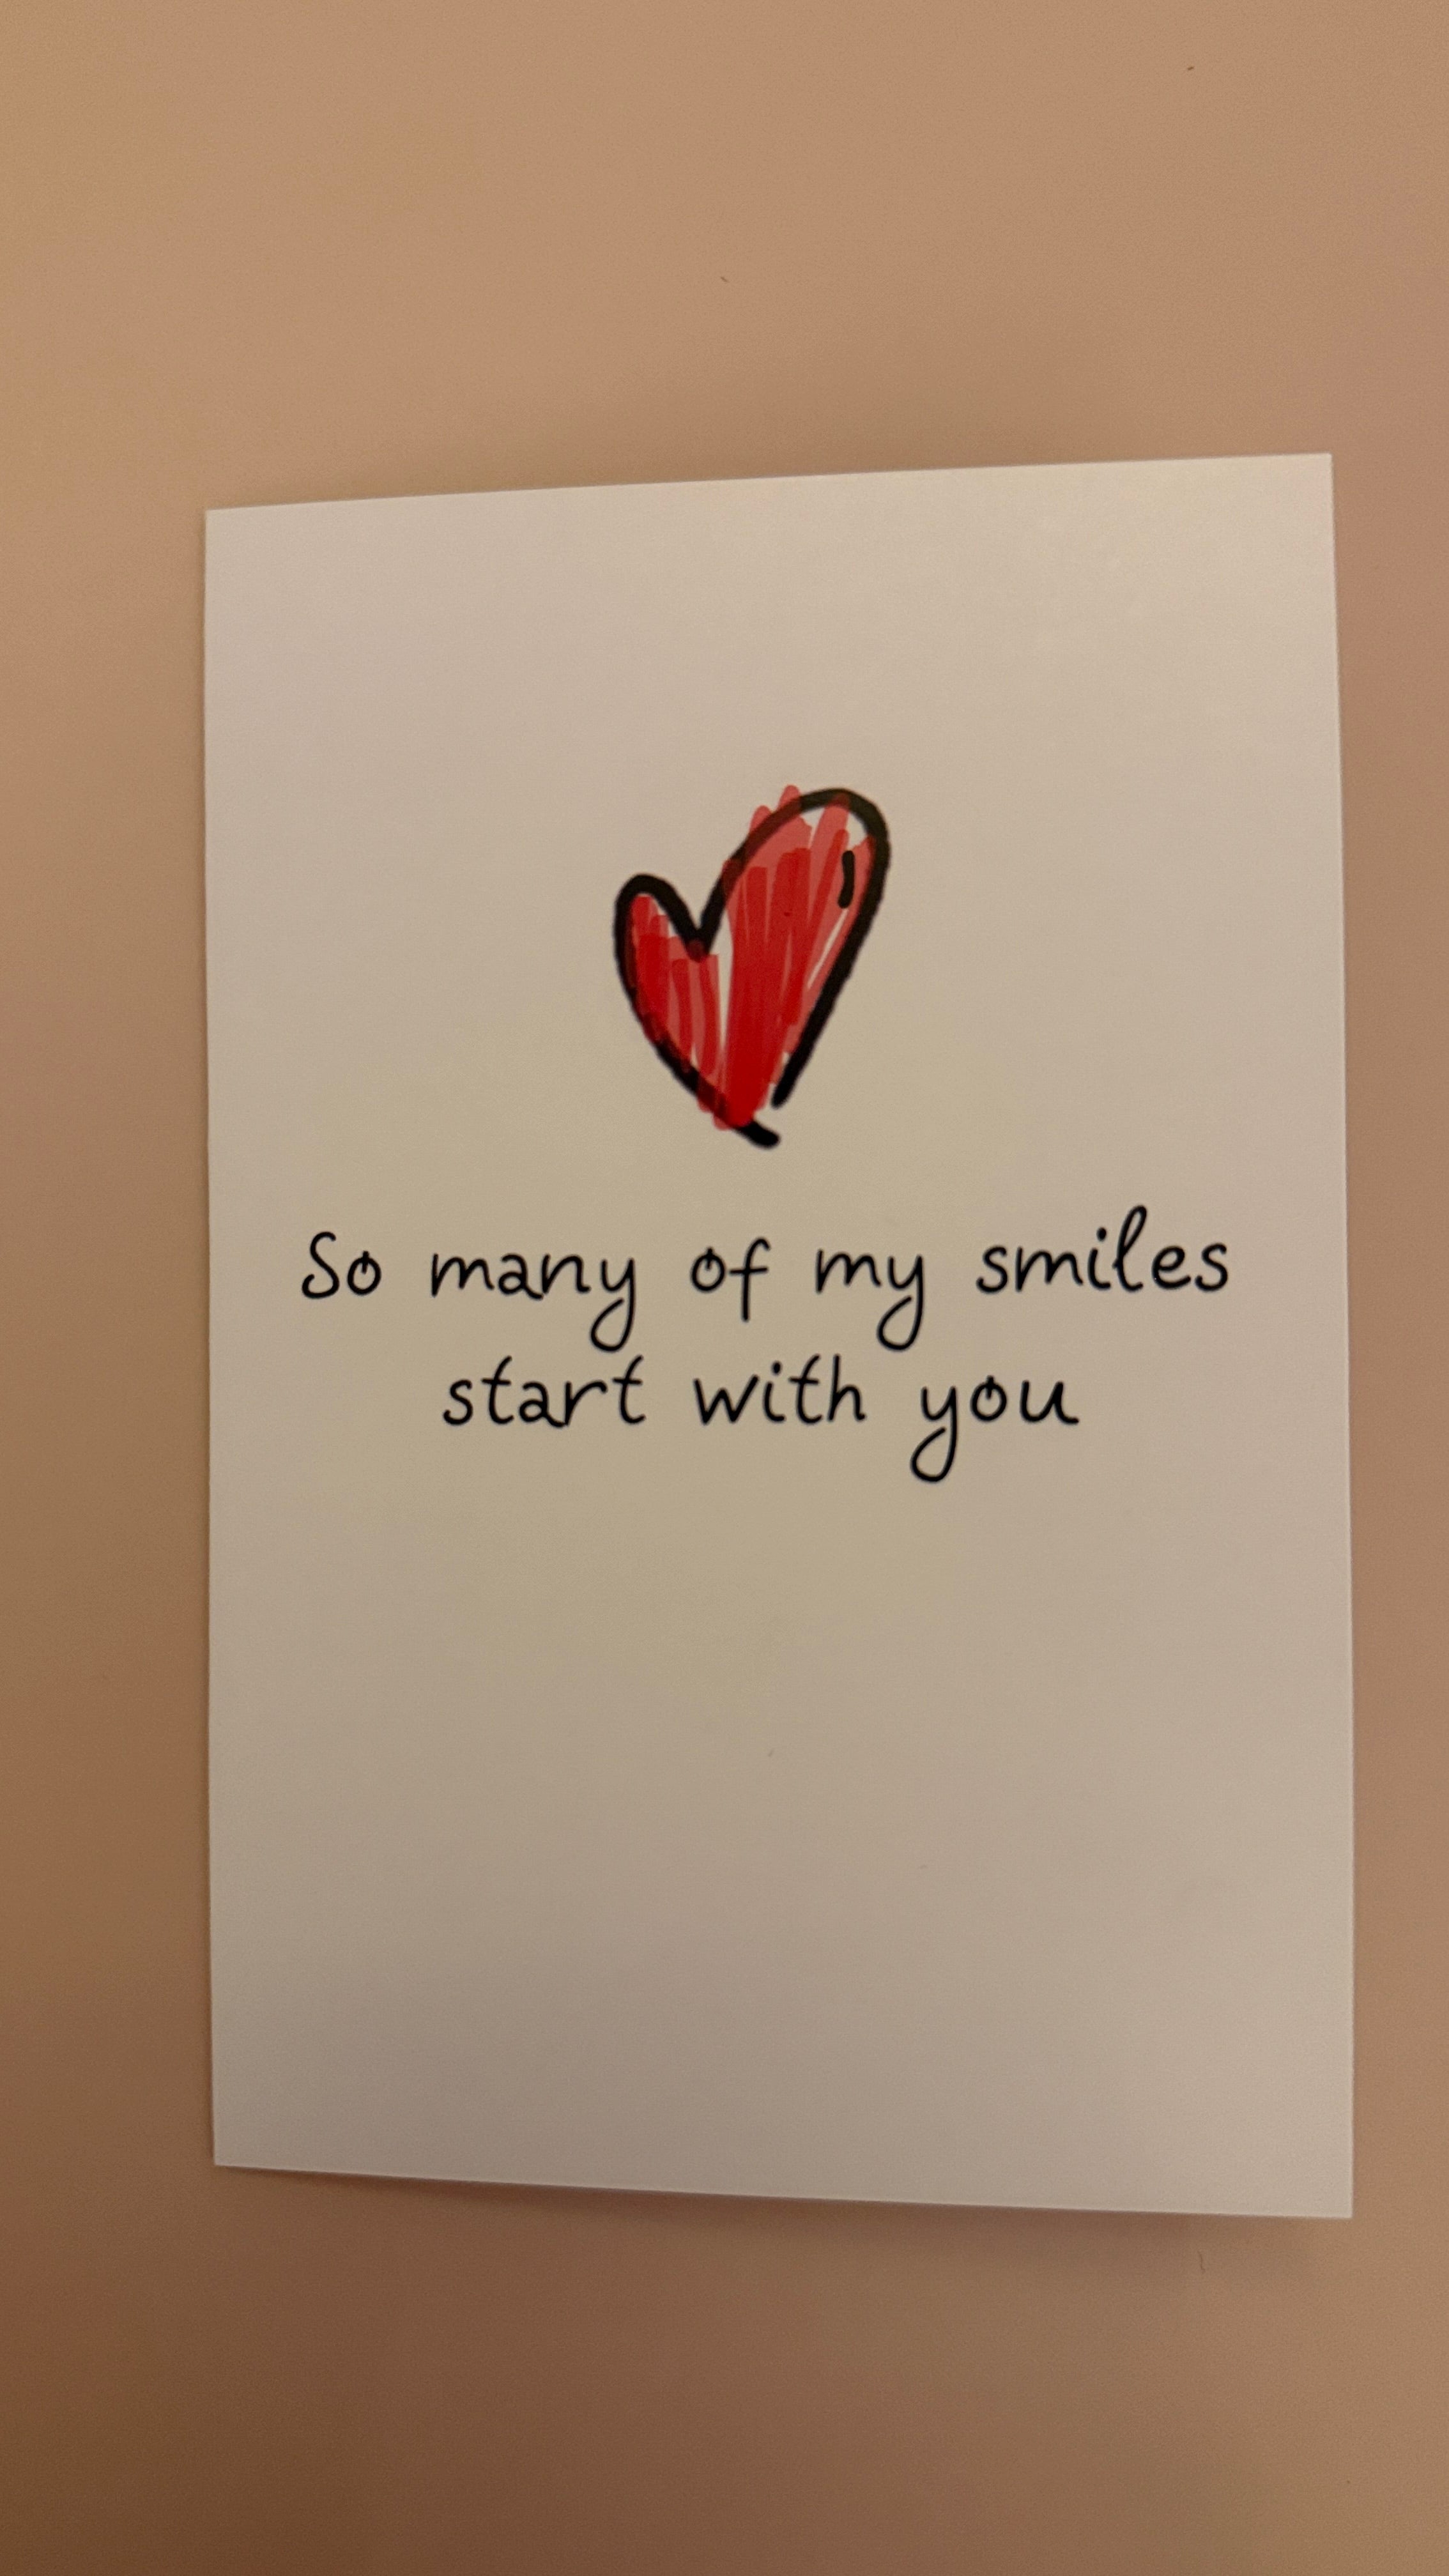 So many of my smiles
start with you